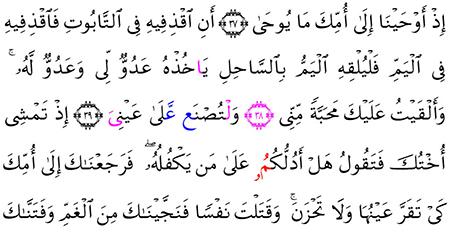 إِذْ أَوْحَيْنَا إِلَىٰ أُمِّكَ مَا يُوحَىٰ ﴿٣٧﴾ أَنِ ٱقْذِفِيهِ فِى ٱلتَّابُوتِ فَٱقْذِفِيهِ
فِى ٱلْيَمِّ فَلْيُلْقِهِ ٱلْيَمُّ بِٱلسَّاحِلِ يَاخُذْهُ عَدُوٌّ لِّى وَعَدُوٌّ لَّهُۥ ۚ
وَأَلْقَيْتُ عَلَيْكَ مَحَبَّةً مِّنِّى ﴿٣٨﴾ وَلْتُصْنَع عَّلَىٰ عَيْنِى ﴿٣٩﴾ إِذْ تَمْشِى
أُخْتُكَ فَتَقُولُ هَلْ أَدُلُّكُمُۥ عَلَىٰ مَن يَكْفُلُهُۥ ۖ فَرَجَعْنَٰكَ إِلَىٰ أُمِّكَ
كَىْ تَقَرَّ عَيْنُهَا وَلَا تَحْزَنَ ۚ وَقَتَلْتَ نَفْسًا فَنَجَّيْنَٰكَ مِنَ ٱلْغَمِّ وَفَتَنَّٰكَ